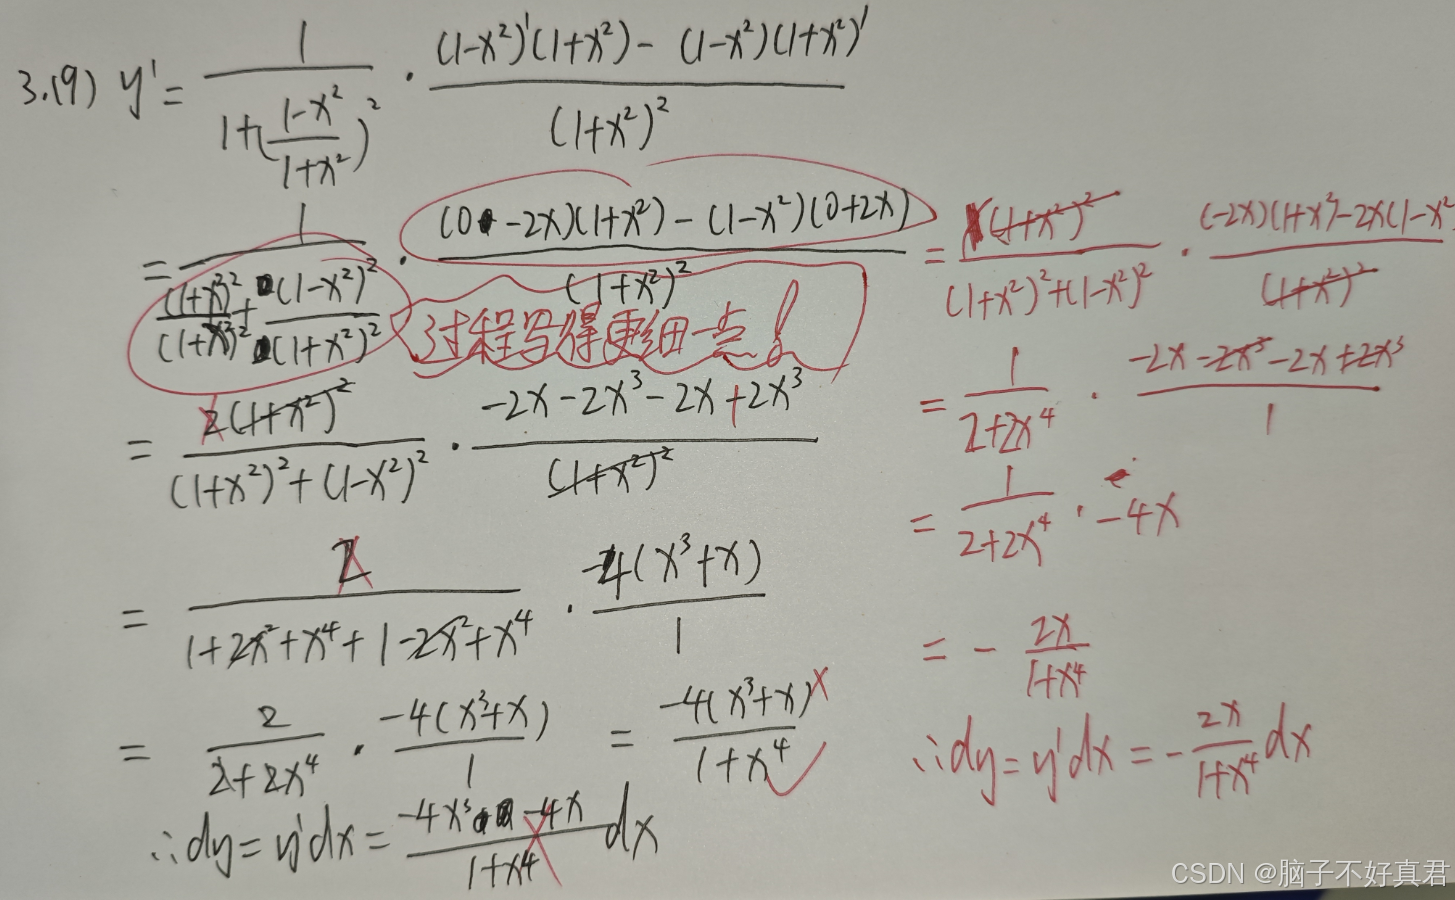 3.(9) y' = 1/(1+((1-x²)/(1+x²))²) · ((1-x²)'(1+x²) - (1-x²)(1+x²)')/(1+x²)²
= 1/((1+x²)²/(1+x²)² + (1-x²)²/(1+x²)²) · ((0-2x)(1+x²) - (1-x²)(0+2x))/(1+x²)²
过程写得更细一点!
= 2(1+x²)²/((1+x²)²+(1-x²)²) · (-2x-2x³-2x+2x³)/(1+x²)²
= 2/(1+2x²+x⁴+1-2x²+x⁴) · -4(x³+x)/1
= 2/(2+2x⁴) · -4(x³+x)/1 = -4(x³+x)/(1+x⁴)
∴dy = y'dx = (-4x³-4x)/(1+x⁴) dx
= (1+x²)²/((1+x²)²+(1-x²)²) · ((-2x)(1+x²)-2x(1-x²)/(1+x²)²
= 1/(2+2x⁴) · (-2x-2x³-2x+2x³)/1
= 1/(2+2x⁴) · -4x
= - 2x/(1+x⁴)
∴dy = y'dx = - 2x/(1+x⁴) dx
CSDN @脑子不好真君